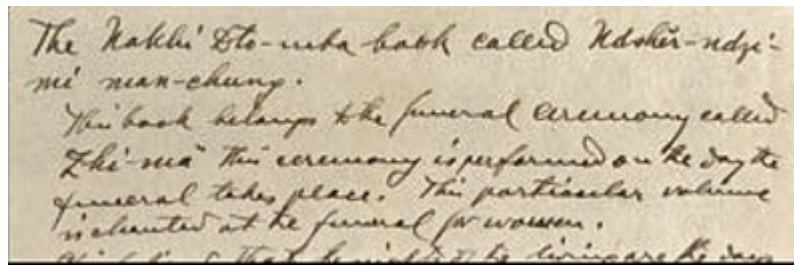 The Nakhi Dto-mba book called Ndshër-ndzi-
mi man-chung.
This book belongs to the funeral ceremony called
Zhi-mä this ceremony is performed on the day the
funeral takes place. This particular volume
is chanted at the funeral for women.
that the the living are the days